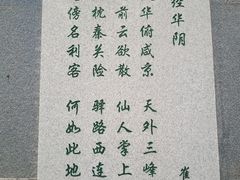 经华阴 崔
华俯咸京 天外三峰
前云欲散 仙人掌上
枕秦关险 驿路西连
傍名利客 何如此地